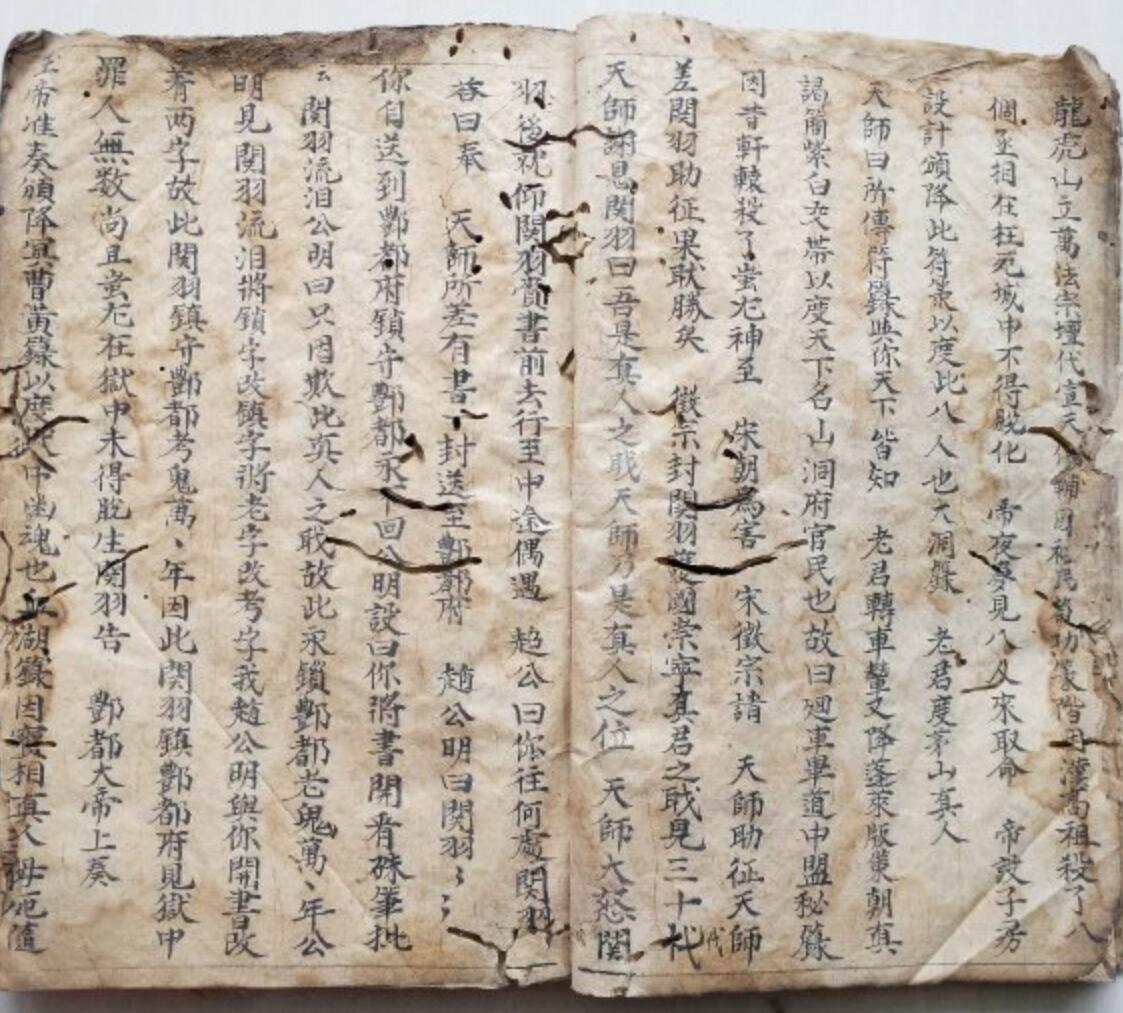 龍虎山立萬法宗壇代宣天 輔国 民 功 階因漢高祖殺了八
個丞相在枉死城中不得脱化 帝夜夢見八人來取命 帝設子房
設計頒降此符籙以度此八人也大洞籙 老君度茅山真人
天師曰所傳符籙與你天下皆知 老君轉車輦又降蓬來版籙朝真
謁簡紫白交帶以度天下名山洞府官民也故曰廻車畢道中盟秘籙
因昔軒轅殺了蚩尤神至 宋朝為害 宋徽宗請 天師助征天師
差関羽助征果耿勝矣 徽宗封関羽護國崇寧真君之戢見三十代代
天師謝恩関羽曰吾是真人之戢天師乃是真人之位 天師大怒関
羽後就仰関羽賫書前去行至中途偶遇 趙公曰你往何處関羽
答曰奉 天師所差有書一封送至酆都府 趙公明曰関羽〻〻
你自送到酆都府鎖守酆都永不回公明設曰你將書開看硃筆批
云関羽流泪公明曰只因欺此真人之戢故此永鎖酆都老鬼萬〻年公
明見関羽流泪將鎖字改鎮字將老字改考字我趙公明與你開書改
着两字故此関羽鎮守酆都考鬼萬〻年因此関羽鎮酆都府見獄中
罪人無数尚且蚩尤在獄中未得脱生関羽告 酆都大帝上奏
玉帝准奏頒降冥曹黄籙以度 中幽魂也血湖籙因 相真人母厄隨